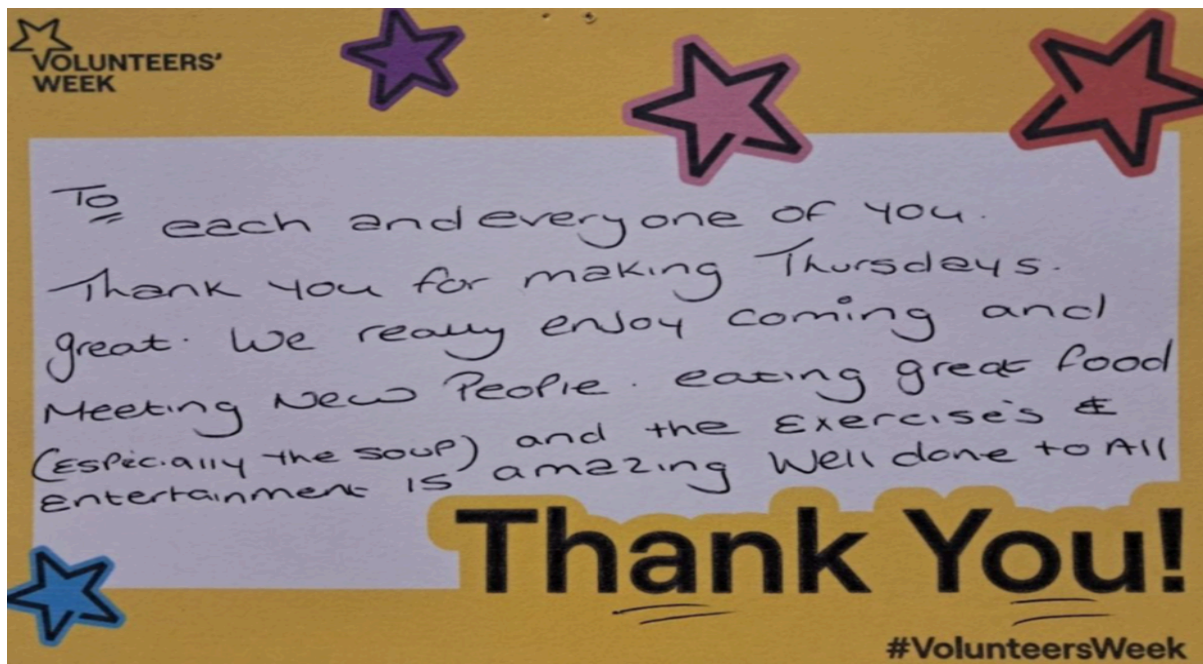 VOLUNTEERS'
WEEK
To
each and everyone of you.
Thank you for making Thursdays.
great. We really enjoy coming and
Meeting New People. eating great food
(Especially the soup) and the Exercise's &
entertainment is amazing Well done to All
Thank You!
#VolunteersWeek